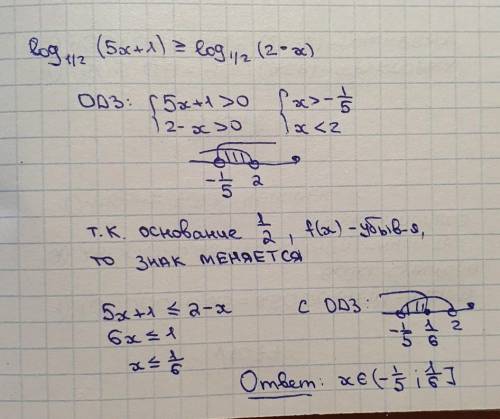 log₁/₂ (5x+1) ≥ log₁/₂ (2-x)
ОДЗ: { 5x+1>0 { x>-1/5
{ 2-x>0 { x<2
-1/5 2
т.к. основание 1/2, f(x) - убыв-я,
то знак меняется
5x+1 ≤ 2-x с ОДЗ:
6x ≤ 1 -1/5 1/6 2
x ≤ 1/6
Ответ: x∈(-1/5; 1/6]